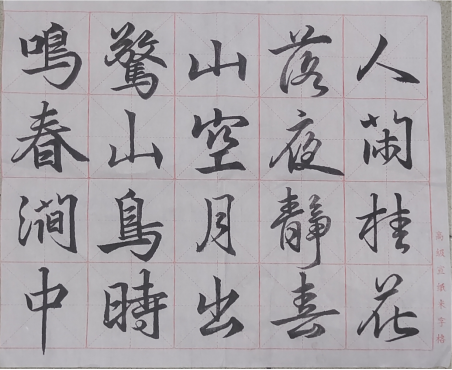 人閑桂花
落夜靜春
山空月出
驚山鳥時
鳴春澗中